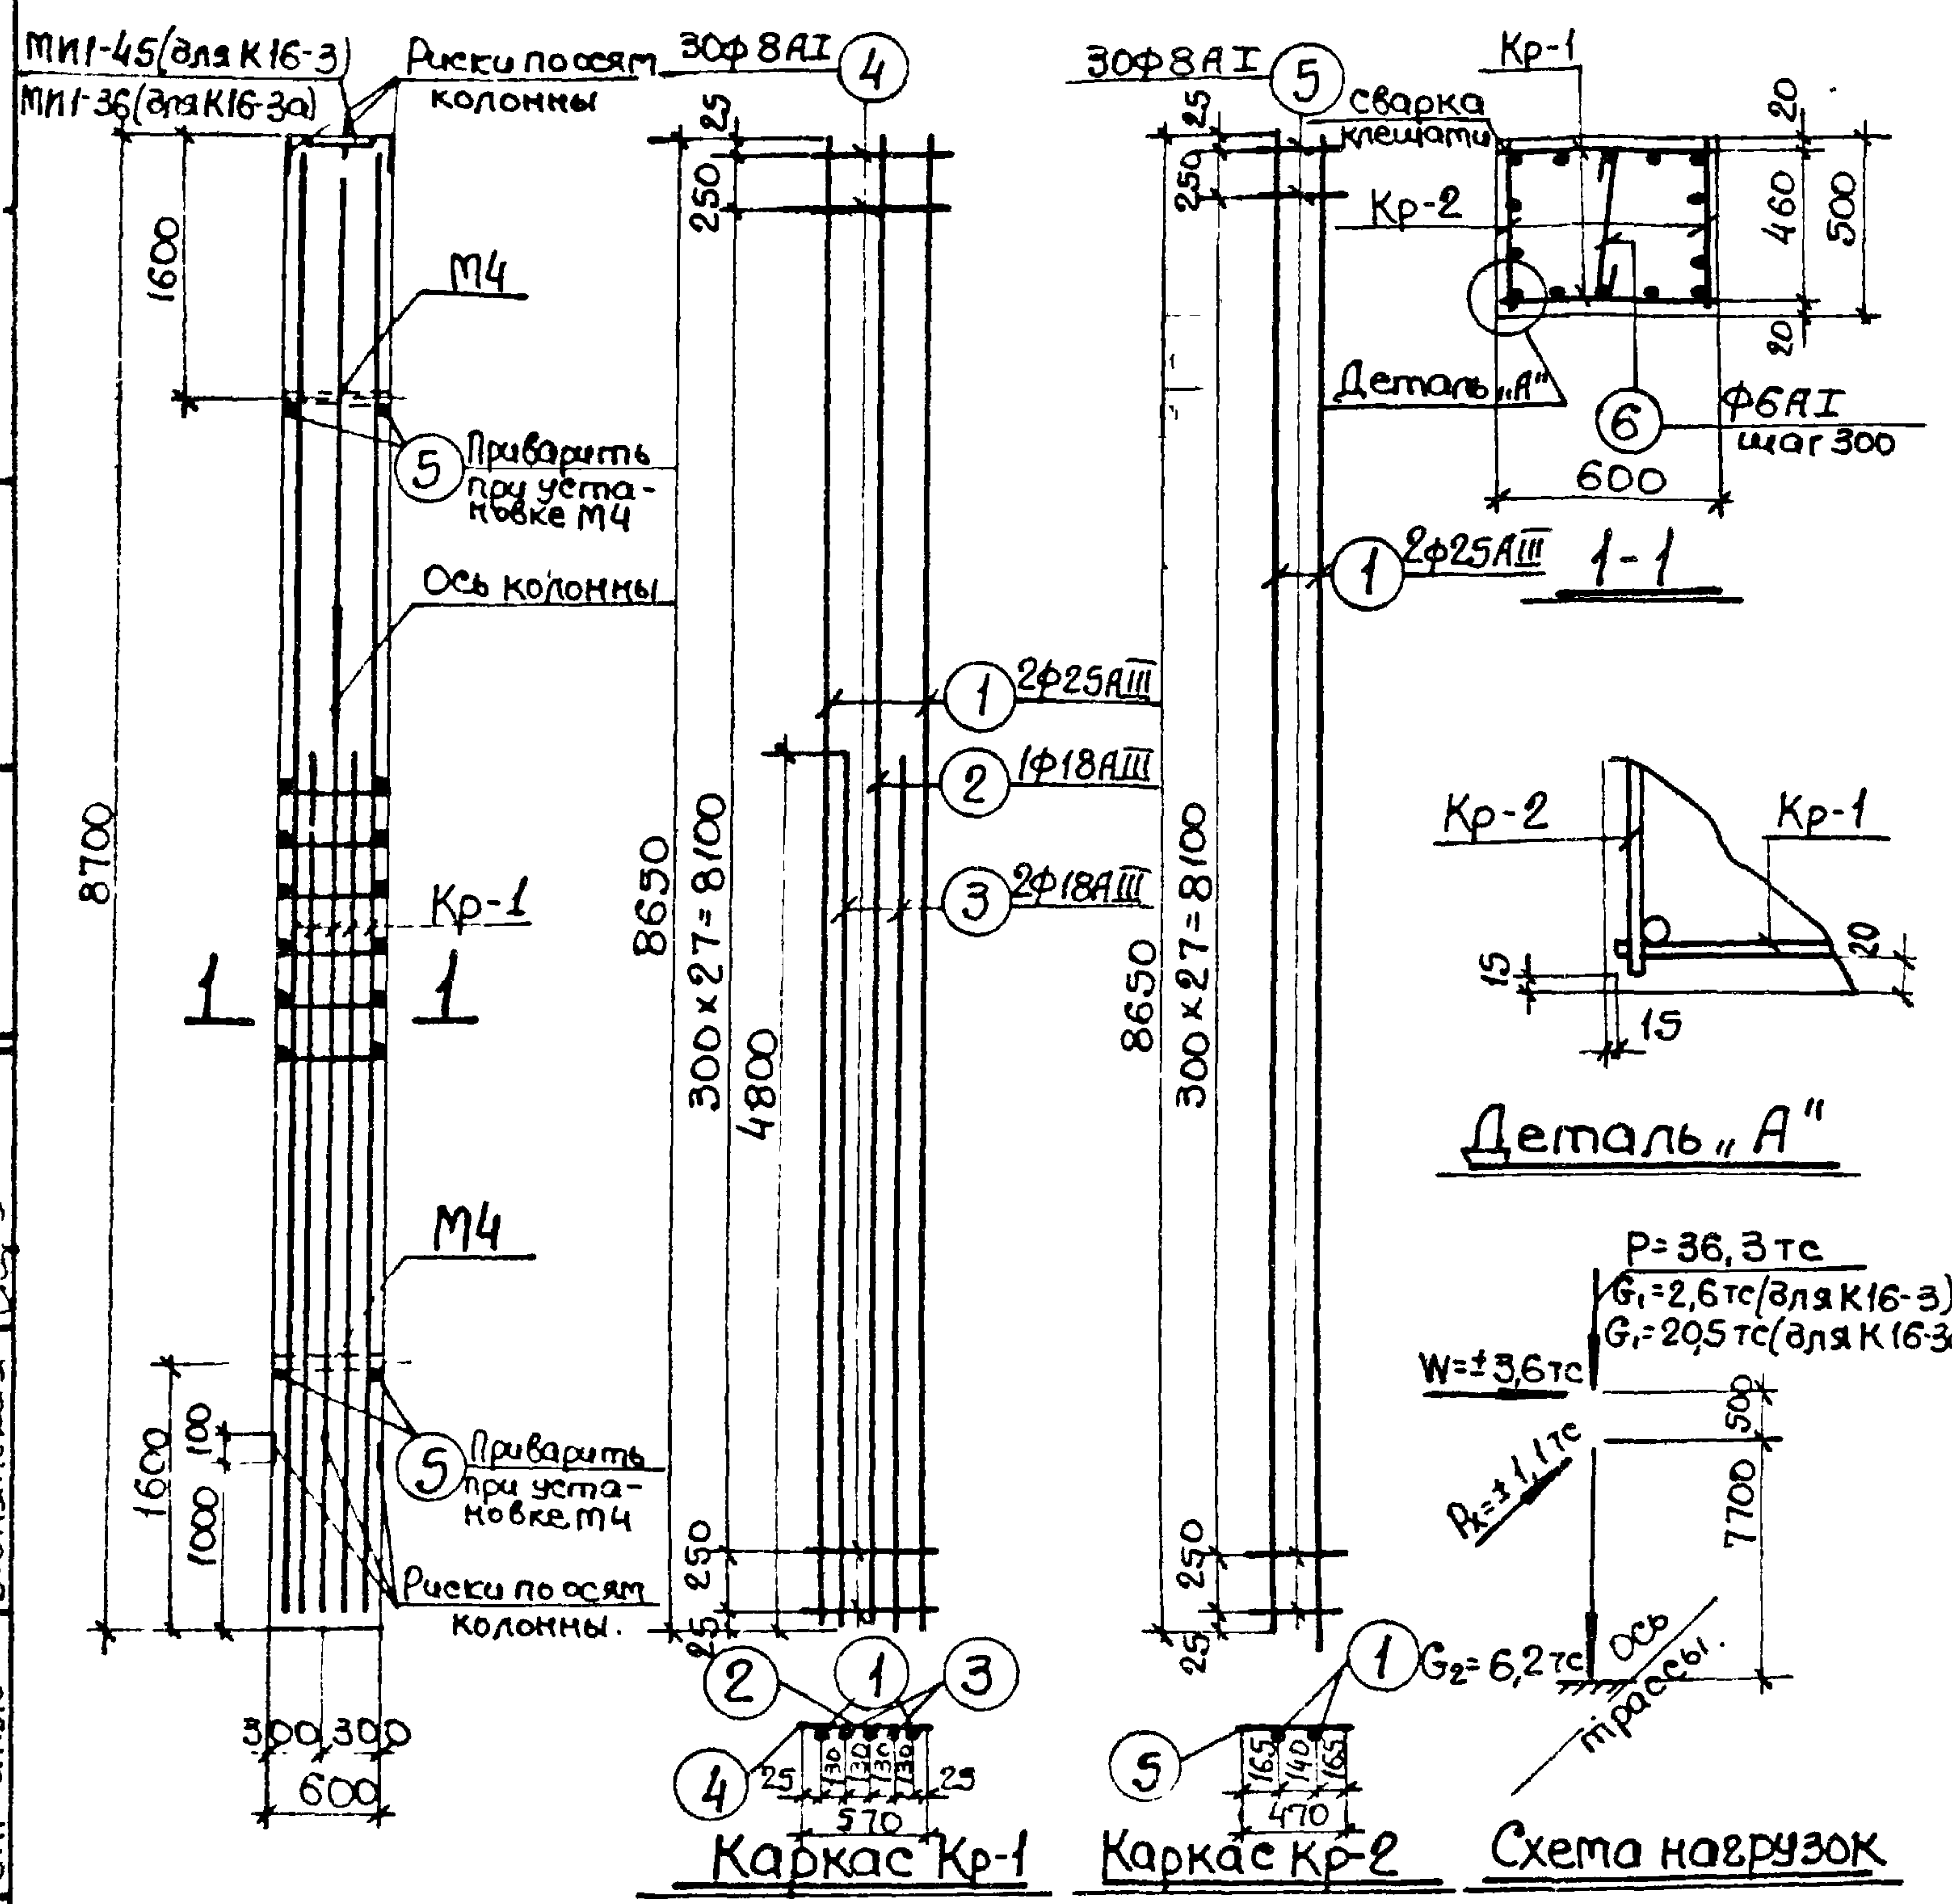 МИ1-45(для К16-3)
МИ1-36(для К16-3а)
Риски по осям
колонны
1600
М4
5
Приварить
при уста-
новке М4
Ось колонны
8700
Кр-1
1
1
М4
1600
100
1000
5
Приварить
при уста-
новке М4
Риски по осям
колонны.
300
300
600
30ф8АI
4
25
250
8650
300х27=8100
4800
1
2ф25АIII
2
1ф18АIII
3
2ф18АIII
250
25
2
1
3
4
25
130
130
130
130
25
570
Каркас Кр-1
30ф8АI
5
25
250
8650
300х27=8100
1
2ф25АIII
250
25
1
5
165
140
165
470
Каркас Кр-2
Кр-1
сварка
клещати
Кр-2
20
460
500
20
Деталь „А"
6
ф6АI
шаг 300
600
1-1
Кр-2
Кр-1
20
15
15
Деталь „А"
Р=36,3тс
G₁=2,6тс(для К16-3)
G₁=20,5тс(для К16-3а
W=±3,6тс
500
Рх=±1,1тс
7700
G₂=6,2тс
Ось
трассы.
Схема нагрузок